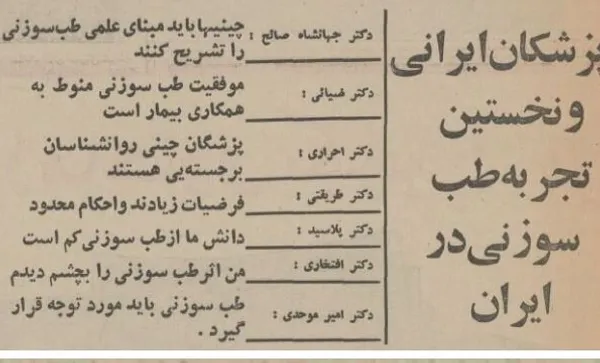 پزشکان ایرانی
و نخستین
تجربه طب
سوزنی در
ایران
دکتر جهانشاه صالح : چینیها باید مبنای علمی طب سوزنی
را تشریح کنند
دکتر ضیائی : موفقیت طب سوزنی منوط به
همکاری بیمار است
دکتر احراری : پزشگان چینی روانشناسان
برجسته‌یی هستند
دکتر طریقتی : فرضیات زیادند و احکام محدود
دکتر پلاسید : دانش ما از طب سوزنی کم است
دکتر افتخاری : من اثر طب سوزنی را بچشم دیدم
دکتر امیر موحدی : طب سوزنی باید مورد توجه قرار
گیرد .